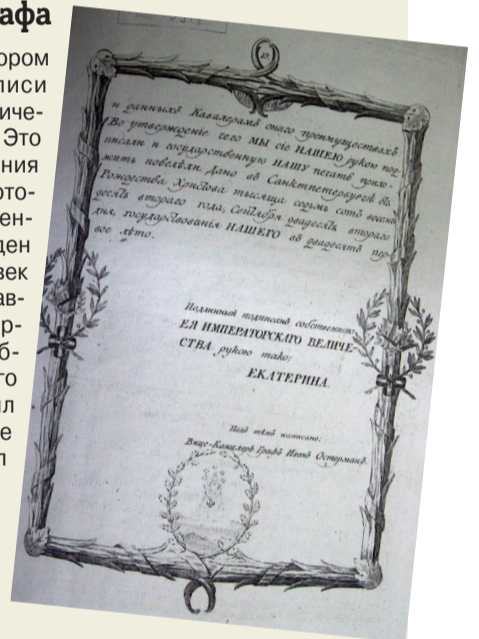 афа
ором
писи
иче-
Это
ния
ото-
ен-
ден
век
ав-
р-
б-
го
л
е
л
и данныхъ Кавалерамъ онаго преимуществахъ.
Во утвержденіе чего МЫ сіе НАШЕЮ рукою под-
писали и государственную НАШУ печать прило-
жить повелѣли. Дано въ Санктпетербургѣ въ
Рождества Христова тысяща седмь сотъ восемь
десятъ втораго года, Сентября двадесять втораго
дня, государствованія НАШЕГО въ двадесять пер-
вое лѣто.
Подлинный подписанъ собственною
ЕЯ ИМПЕРАТОРСКАГО ВЕЛИЧЕ-
СТВА рукою тако:
ЕКАТЕРИНА.
Подъ тѣмъ написано:
Вице-Канцлеръ Графъ Иванъ Остерманъ.